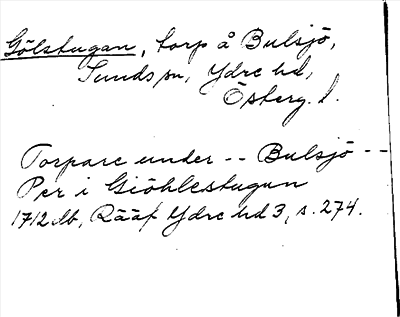 Gölstugan, torp å Bulsjö,
Sunds sn, Ydre hd,
Österg. l.
Torpare under -- Bulsjö --
Per i Giöhlestugun
1712 db, Rääf Ydre hd 3, s. 274.